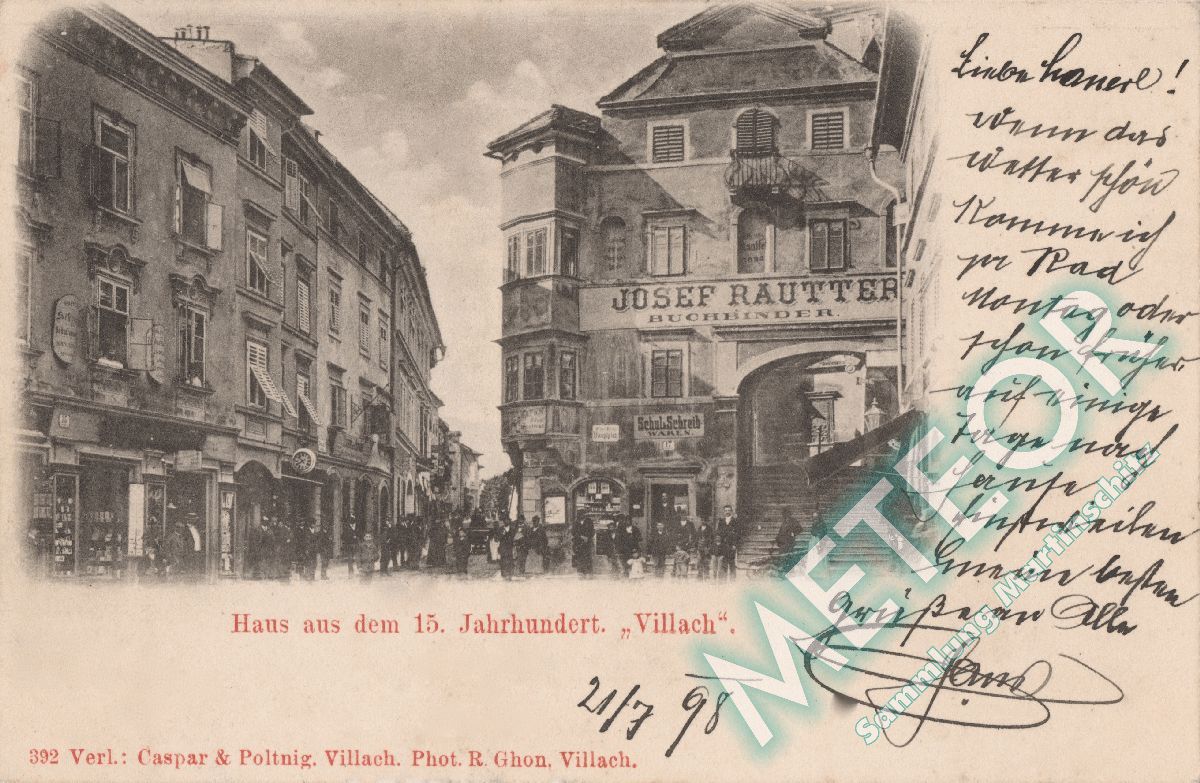 JOSEF RAUTTER
BUCHBINDER.
Schul. & Schreib
WAREN.
Liebe
wenn das
Wetter schön
Komme ich
pr Rad
Montag oder
schon früher
auf einige
Tage nach
Hause
Einsterweilen
meine besten
Grüße an Alle
Hans
21/7 98
Haus aus dem 15. Jahrhundert. „Villach“.
392 Verl.: Caspar & Poltnig. Villach. Phot. R. Ghon, Villach.
METEOR
Sammlung Martinschitz